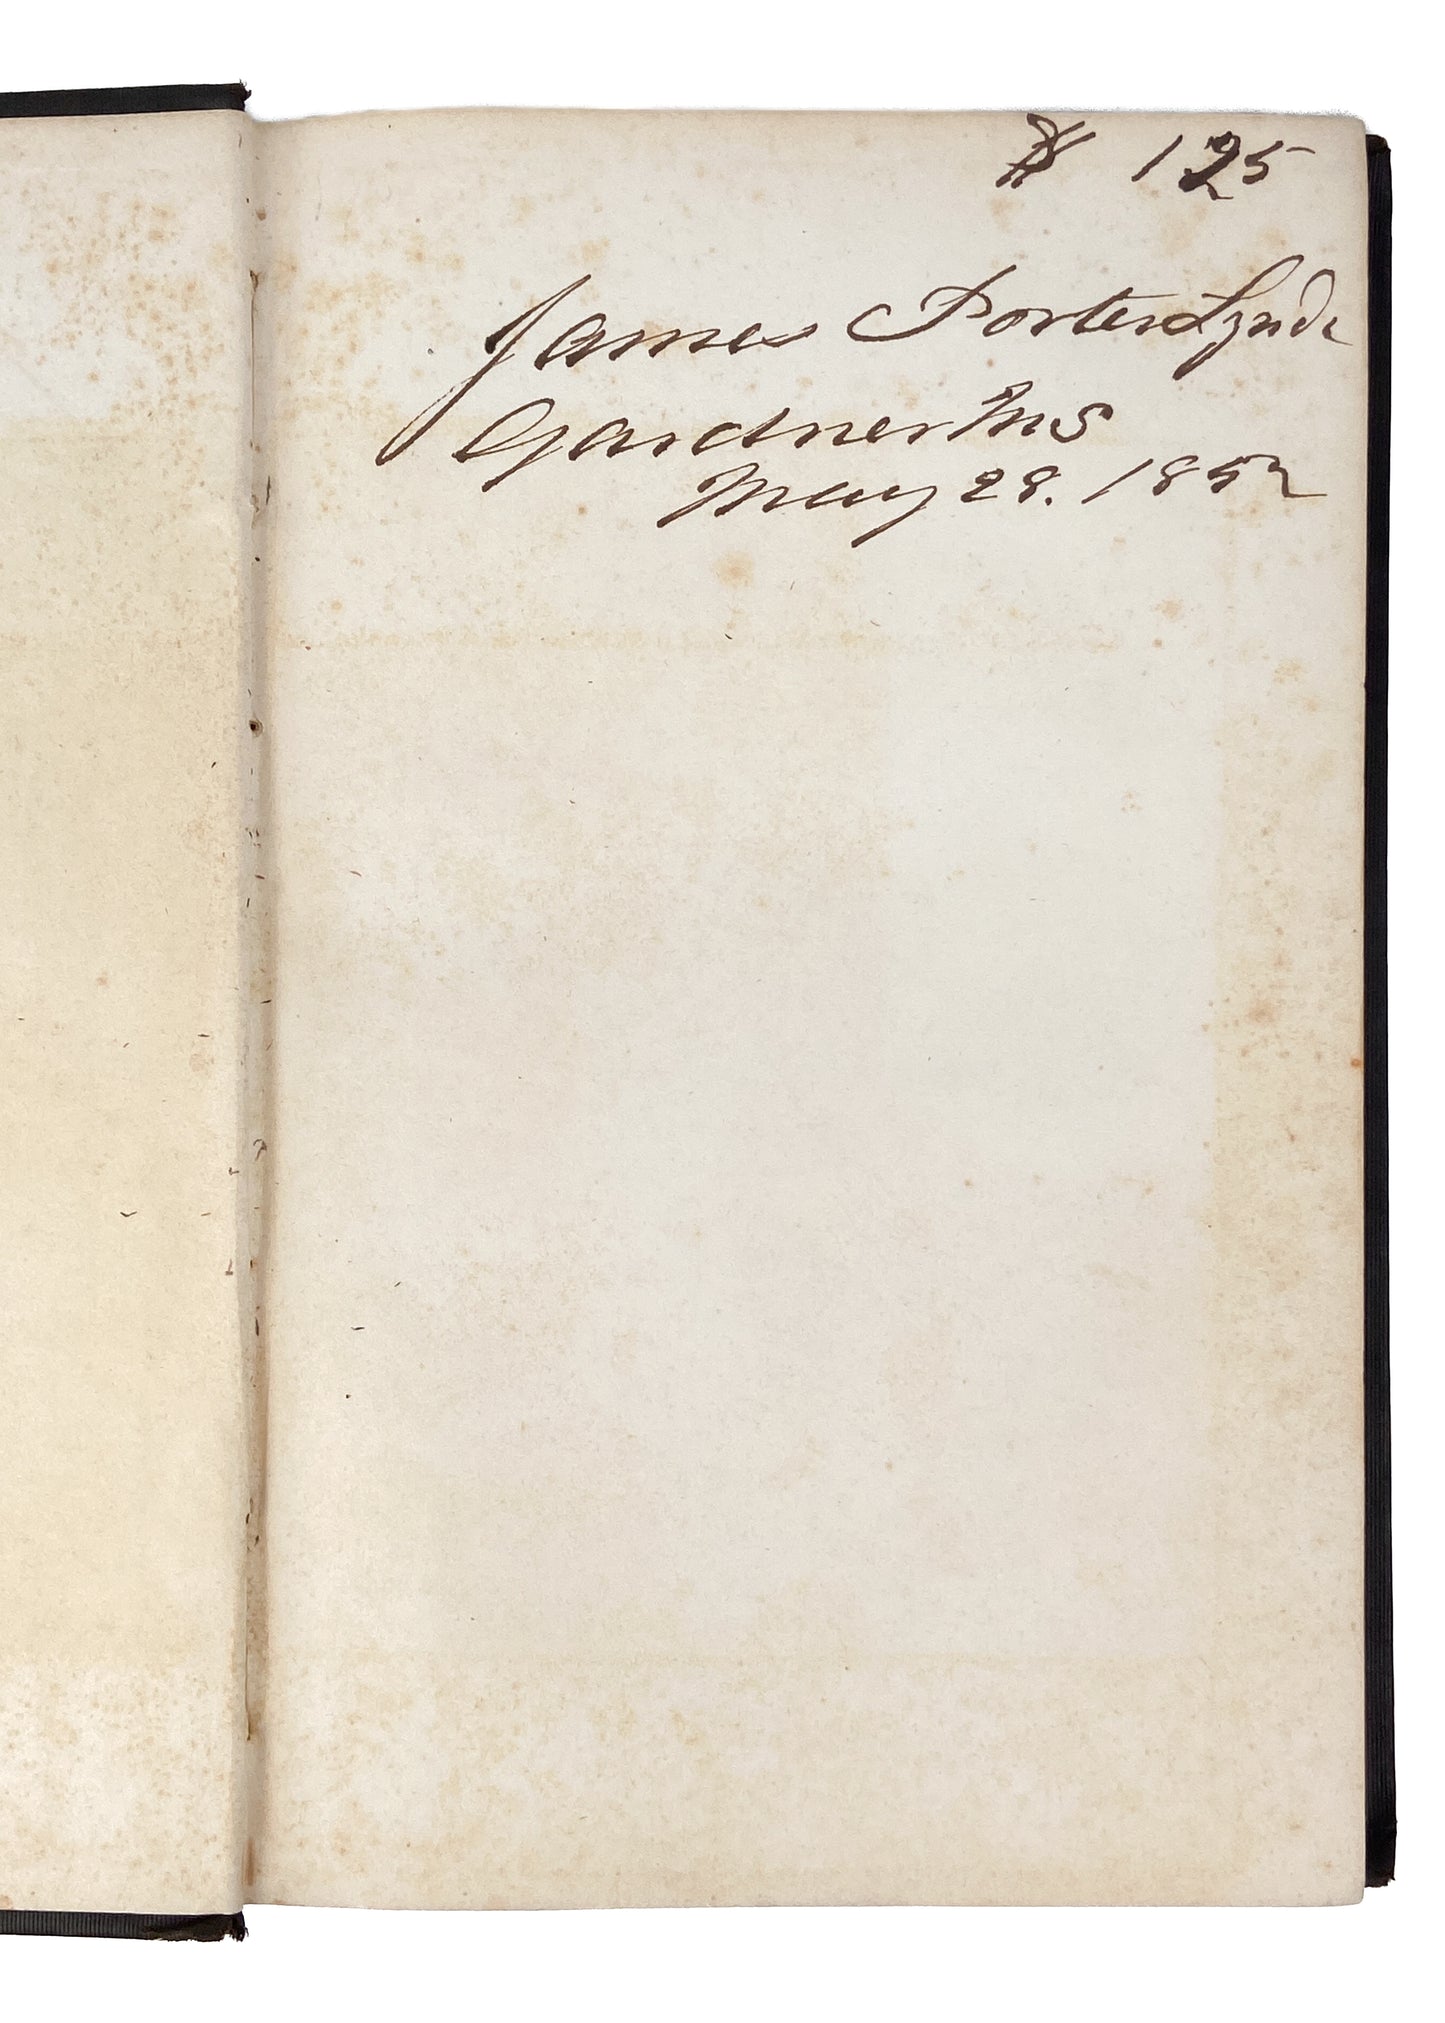 $ 125
James Porter Lynde
Gardner Ms
May 28. 1852